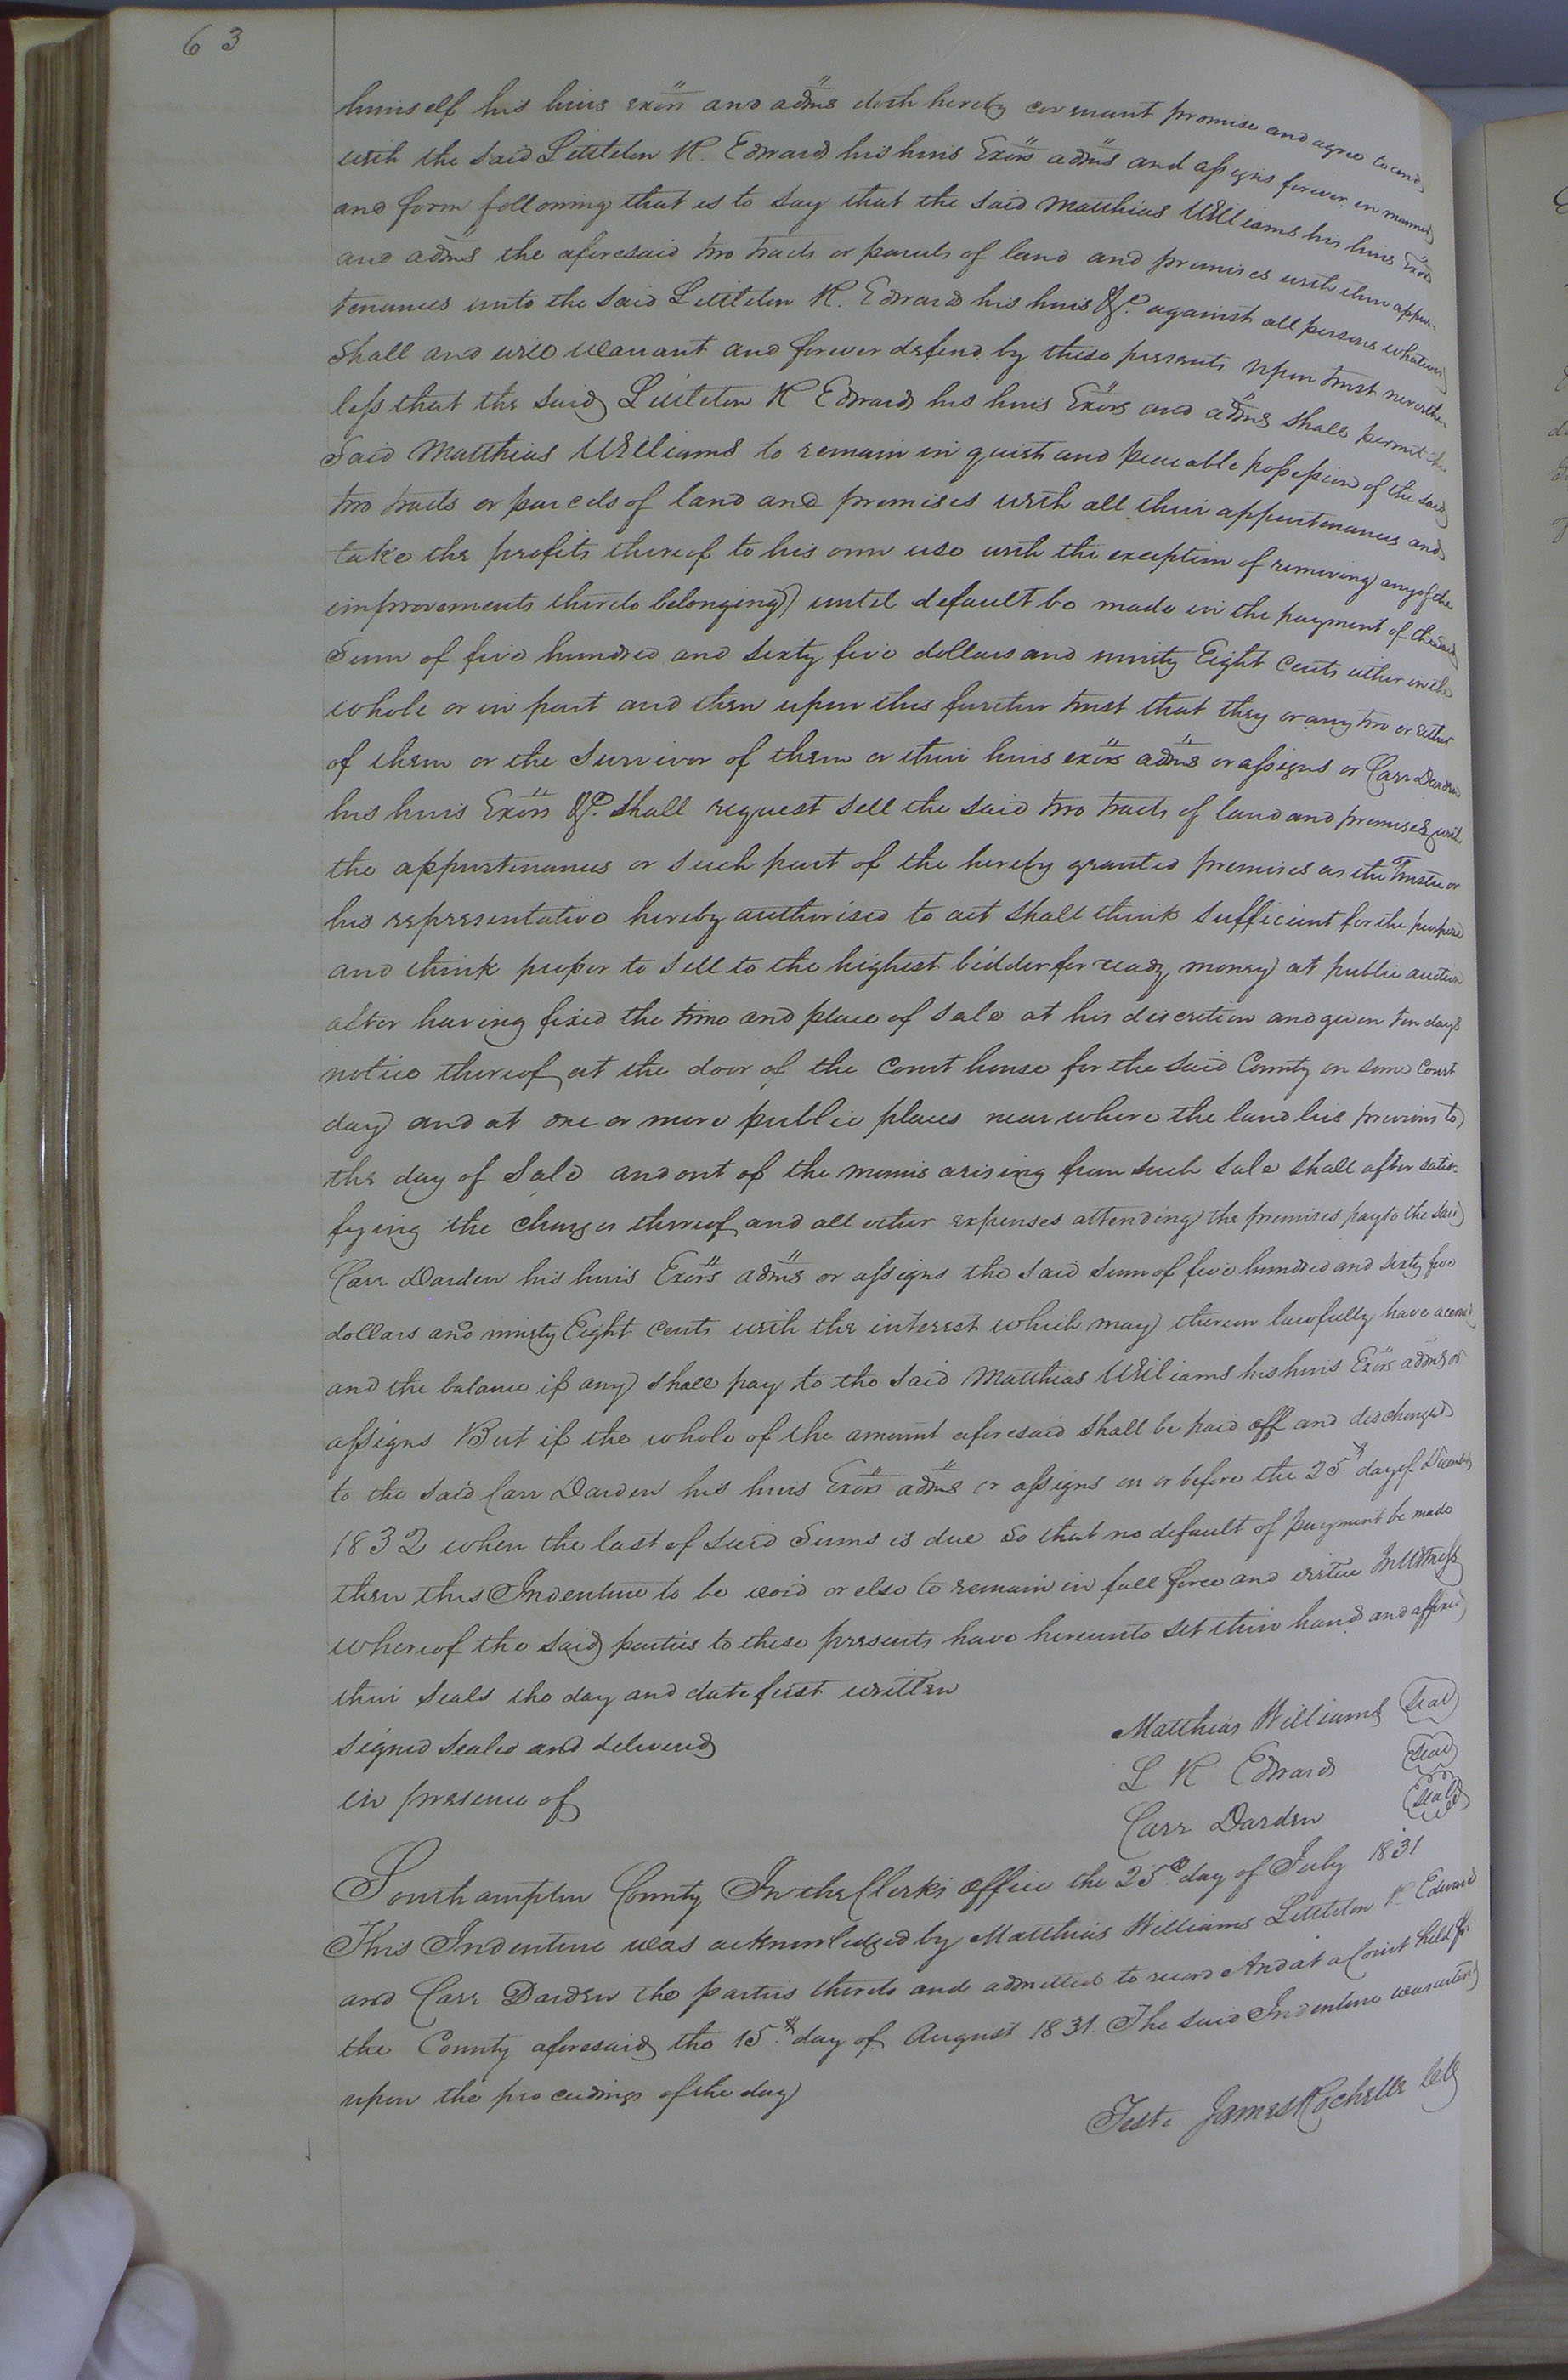 63
himself his heirs exõrs and adm̃s doth hereby covenant promise and agree to and
with the said Littleton R. Edwards his heirs Exõrs adm̃s and assigns forever in manner
and form following that is to say that the said Matthias Williams his heirs Exõrs
and adm̃s the aforesaid two tracts or parcels of land and premises with their appur-
tenances unto the said Littleton R. Edwards his heirs &c. against all persons whatever
shall and will warrant and forever defend by these presents upon trust neverthe-
less that the said Littleton R Edwards his heirs Exõrs and adm̃s shall permit the
said Matthias Williams to remain in quiet and peaceable possession of the said
two tracts or parcels of land and premises with all their appurtenances and
take the profits thereof to his own use with the exception of removing any of the
improvements thereto belonging) until default be made in the payment of the said
Sum of five hundred and sixty five dollars and ninety Eight cents either in the
whole or in part and then upon this further trust that they or any two or either
of them or the Survivor of them or their heirs exõrs adm̃s or assigns or Carr Darden
his heirs Exõrs &c. shall request sell the said two tracts of land and premises with
the appurtenances or such part of the hereby granted premises as the Trustee or
his representative hereby authorised to act shall think sufficient for the purpose
and think proper to sell to the highest bidder for ready money at public auction
after having fixed the time and place of sale at his discretion and given ten days
notice thereof at the door of the Court house for the said County on some Court
day and at one or more public places near where the land lies previous to
the day of Sale and out of the monies arising from such sale shall after satis-
fying the charges thereof and all other expenses attending the premises pay to the said
Carr Darden his heirs Exõrs adm̃s or assigns the said sum of five hundred and sixty five
dollars and ninety Eight cents with the interest which may thereon lawfully have accrued
and the balance if any shall pay to the said Matthias Williams his heirs Exõrs adm̃s or
assigns But if the whole of the amount aforesaid shall be paid off and discharged
to the said Carr Darden his heirs Exõrs adm̃s or assigns on or before the 25th. day of December
1832 when the last of said Sums is due so that no default of payment be made
then this Indenture to be void or else to remain in full force and virtue In Witness
whereof the said parties to these presents have hereunto set their hand and affixed
their seals the day and date first written
Signed sealed and delivered
in presence of
Matthias Williams (seal)
L R Edwards (seal)
Carr Darden (seal)
Southampton County In the Clerks office the 25th. day of July 1831
This Indenture was acknowledged by Matthias Williams Littleton R. Edwards
and Carr Darden the parties thereto and admitted to record And at a Court held for
the County aforesaid the 15th. day of August 1831. The said Indenture was entered
upon the proceedings of the day
Teste James Rochelle Clk